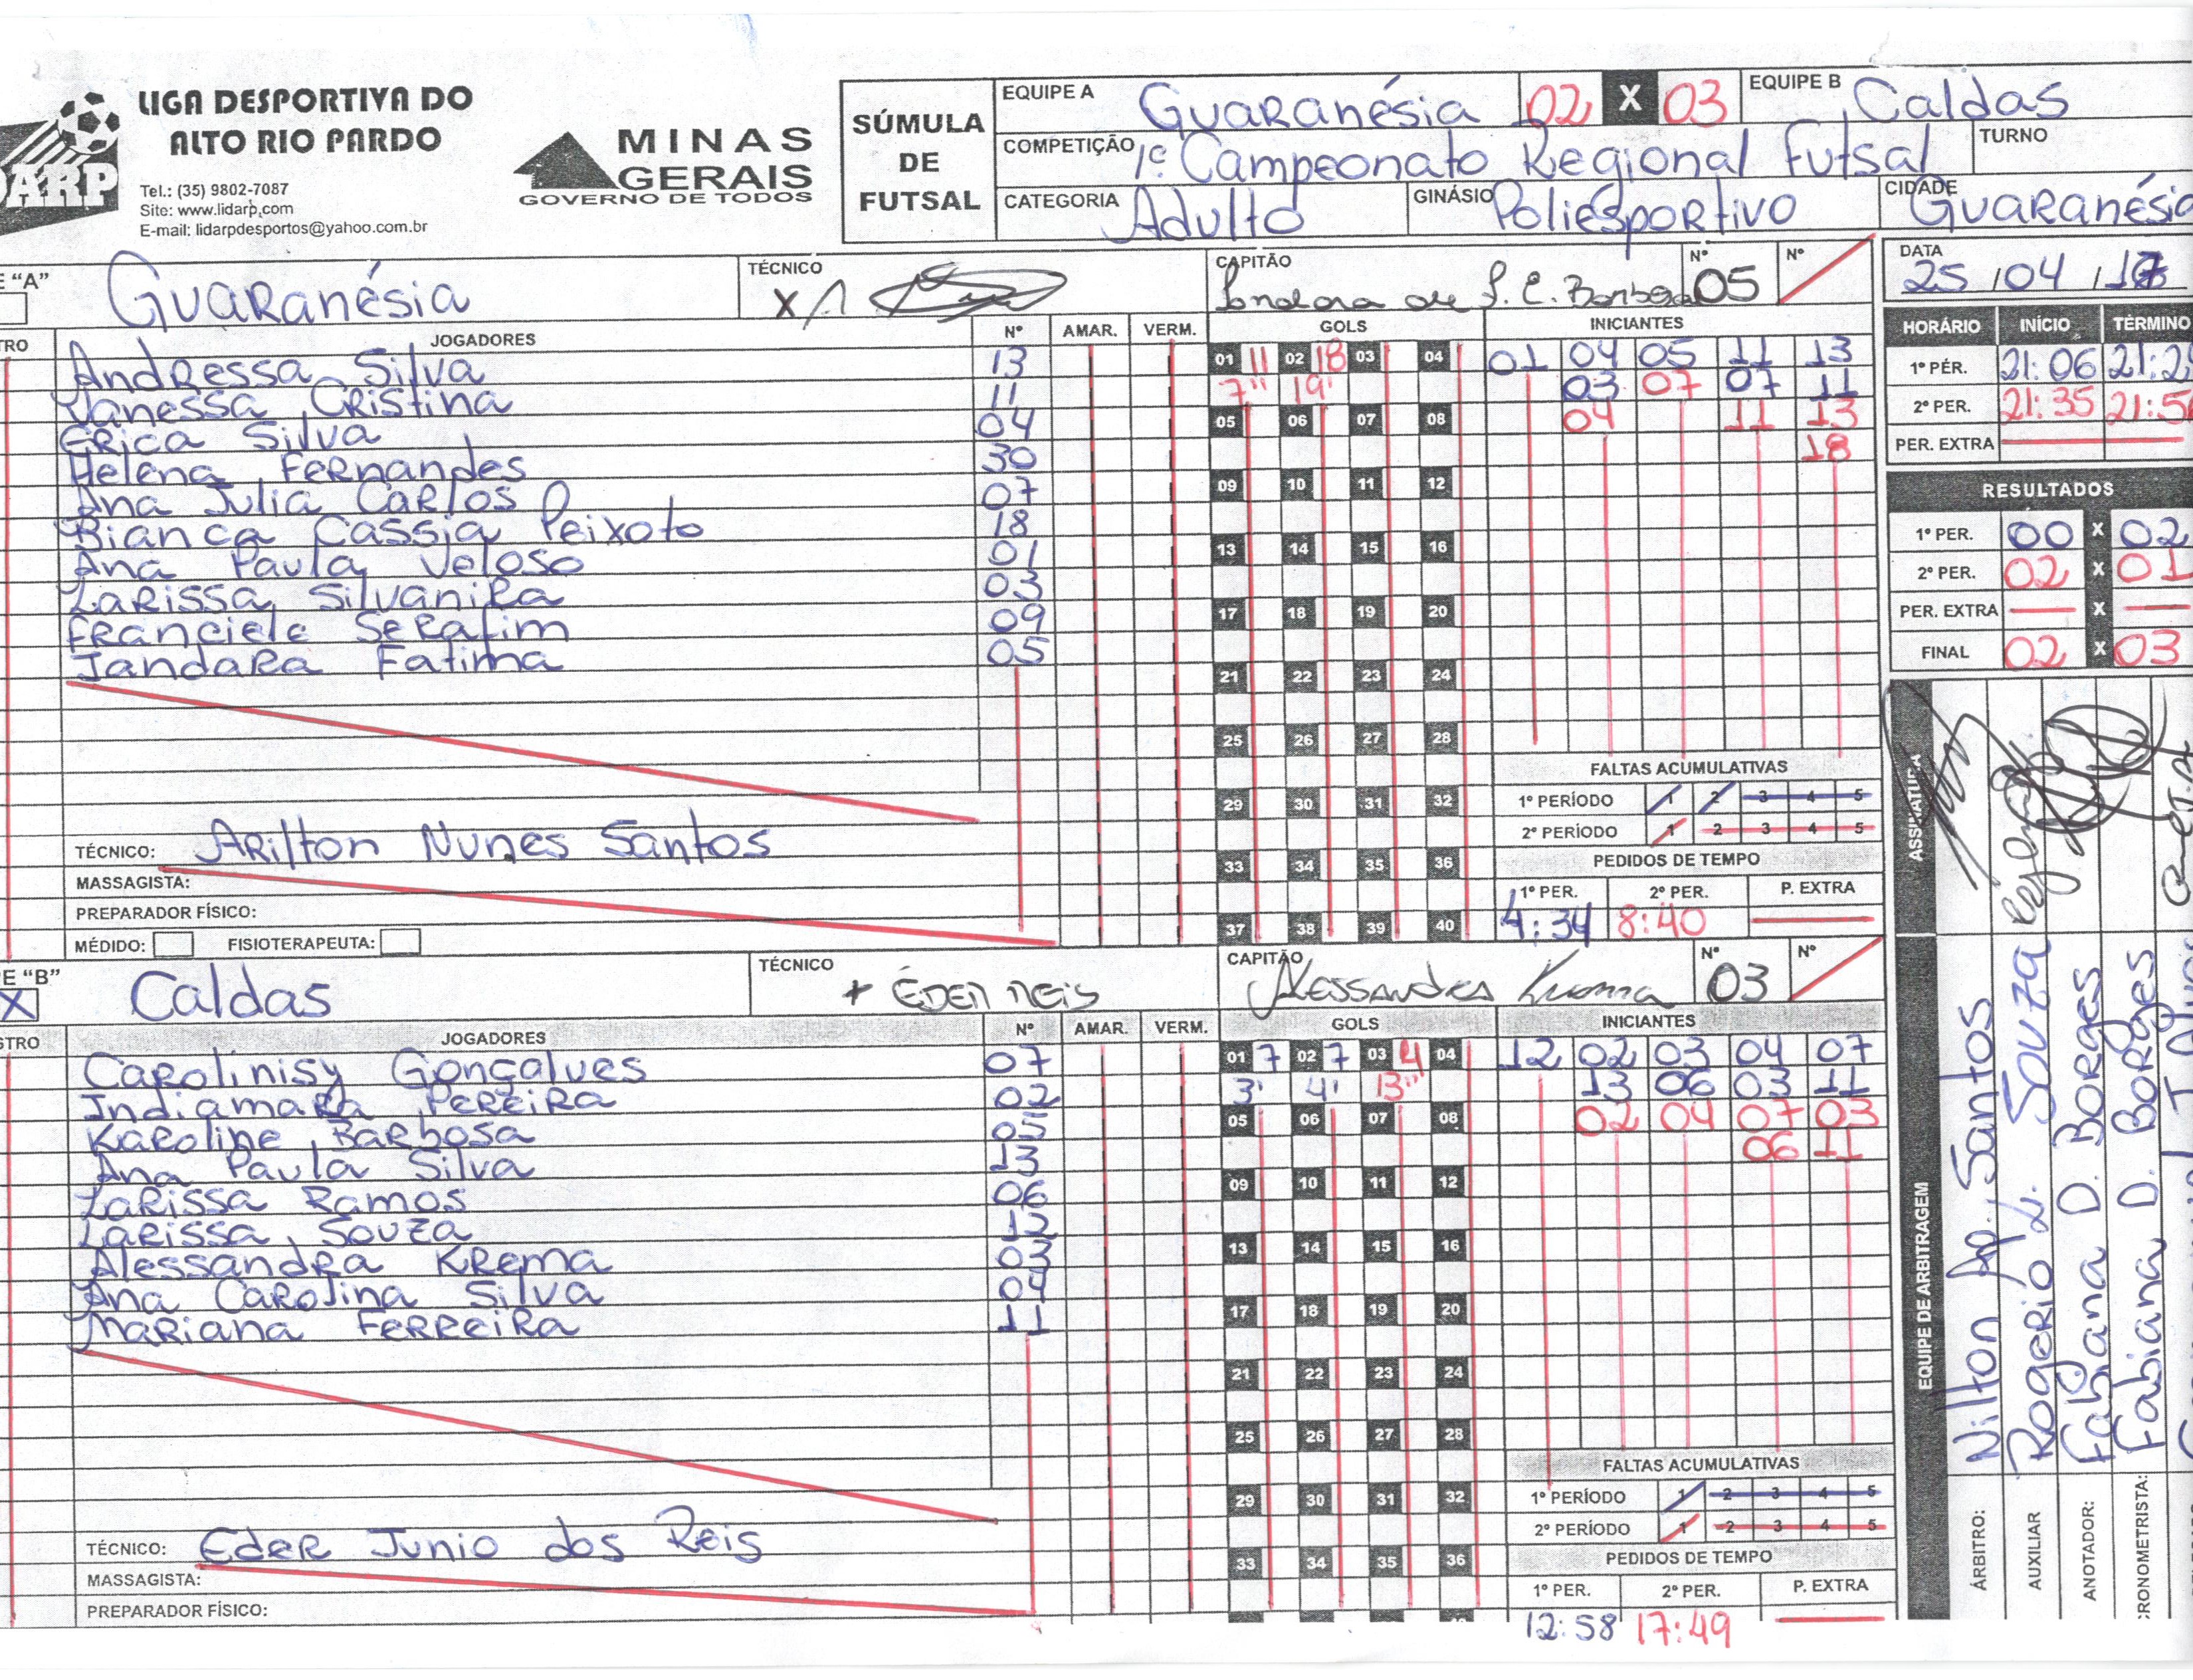 LIGA DESPORTIVA DO
ALTO RIO PARDO
Tel.: (35) 9802-7087
Site: www.lidarp.com
E-mail: lidarpdesportos@yahoo.com.br
DARP
MINAS
GERAIS
GOVERNO DE TODOS
SÚMULA
DE
FUTSAL
EQUIPE A Guaranésia 02 X 03 EQUIPE B Caldas
COMPETIÇÃO 1º Campeonato Regional Futsal TURNO
CATEGORIA Adulto GINÁSIO Poliesportivo CIDADE Guaranésia
E "A" Guaranésia TÉCNICO X CAPITÃO Nº 05 Nº
DATA 25/04/
TRO JOGADORES Nº AMAR. VERM. GOLS INICIANTES
Andressa Silva 13
Vanessa Cristina 11
Erica Silva 04
Helena Fernandes 30
Ana Julia Carlos 07
Bianca Cassia Peixoto 18
Ana Paula Veloso 01
Larissa Silvanira 03
Franciele Serafim 09
Jandara Fatima 05
01 11 02 18 03 04
7" 19'
05 06 07 08
09 10 11 12
13 14 15 16
17 18 19 20
21 22 23 24
25 26 27 28
29 30 31 32
33 34 35 36
37 38 39 40
01 04 05 11 13
03 07 07 11
04 11 13
18
FALTAS ACUMULATIVAS
1º PERÍODO 1 2 3 4 5
2º PERÍODO 1 2 3 4 5
PEDIDOS DE TEMPO
1º PER. 2º PER. P. EXTRA
4:34 8:40
TÉCNICO: Arilton Nunes Santos
MASSAGISTA:
PREPARADOR FÍSICO:
MÉDIDO: FISIOTERAPEUTA:
HORÁRIO INÍCIO TÉRMINO
1º PÉR. 21:06 21:2
2º PER. 21:35 21:5
PER. EXTRA
RESULTADOS
1º PER. 00 X 02
2º PER. 02 X 01
PER. EXTRA X
FINAL 02 X 03
E "B" X Caldas TÉCNICO + Éder Reis CAPITÃO Alessandra Krema Nº 03 Nº
STRO JOGADORES Nº AMAR. VERM. GOLS INICIANTES
Carolinisy Gonçalves 07
Indiamara Pereira 02
Karoline Barbosa 05
Ana Paula Silva 13
Larissa Ramos 06
Larissa Souza 12
Alessandra Krema 03
Ana Carolina Silva 04
Mariana Ferreira 11
01 7 02 7 03 4 04
3' 4' 13"
05 06 07 08
09 10 11 12
13 14 15 16
17 18 19 20
21 22 23 24
25 26 27 28
29 30 31 32
33 34 35 36
12 02 03 04 07
13 06 03 11
02 04 07 03
06 11
FALTAS ACUMULATIVAS
1º PERÍODO 1 2 3 4 5
2º PERÍODO 1 2 3 4 5
PEDIDOS DE TEMPO
1º PER. 2º PER. P. EXTRA
12:58 17:49
TÉCNICO: Eder Junio dos Reis
MASSAGISTA:
PREPARADOR FÍSICO:
ASSINATURA
EQUIPE DE ARBITRAGEM
ÁRBITRO: Nilton Ap. Santos
AUXILIAR Rogerio L. Souza
ANOTADOR: Fabiana D. Borges
CRONOMETRISTA: Fabiana D. Borges